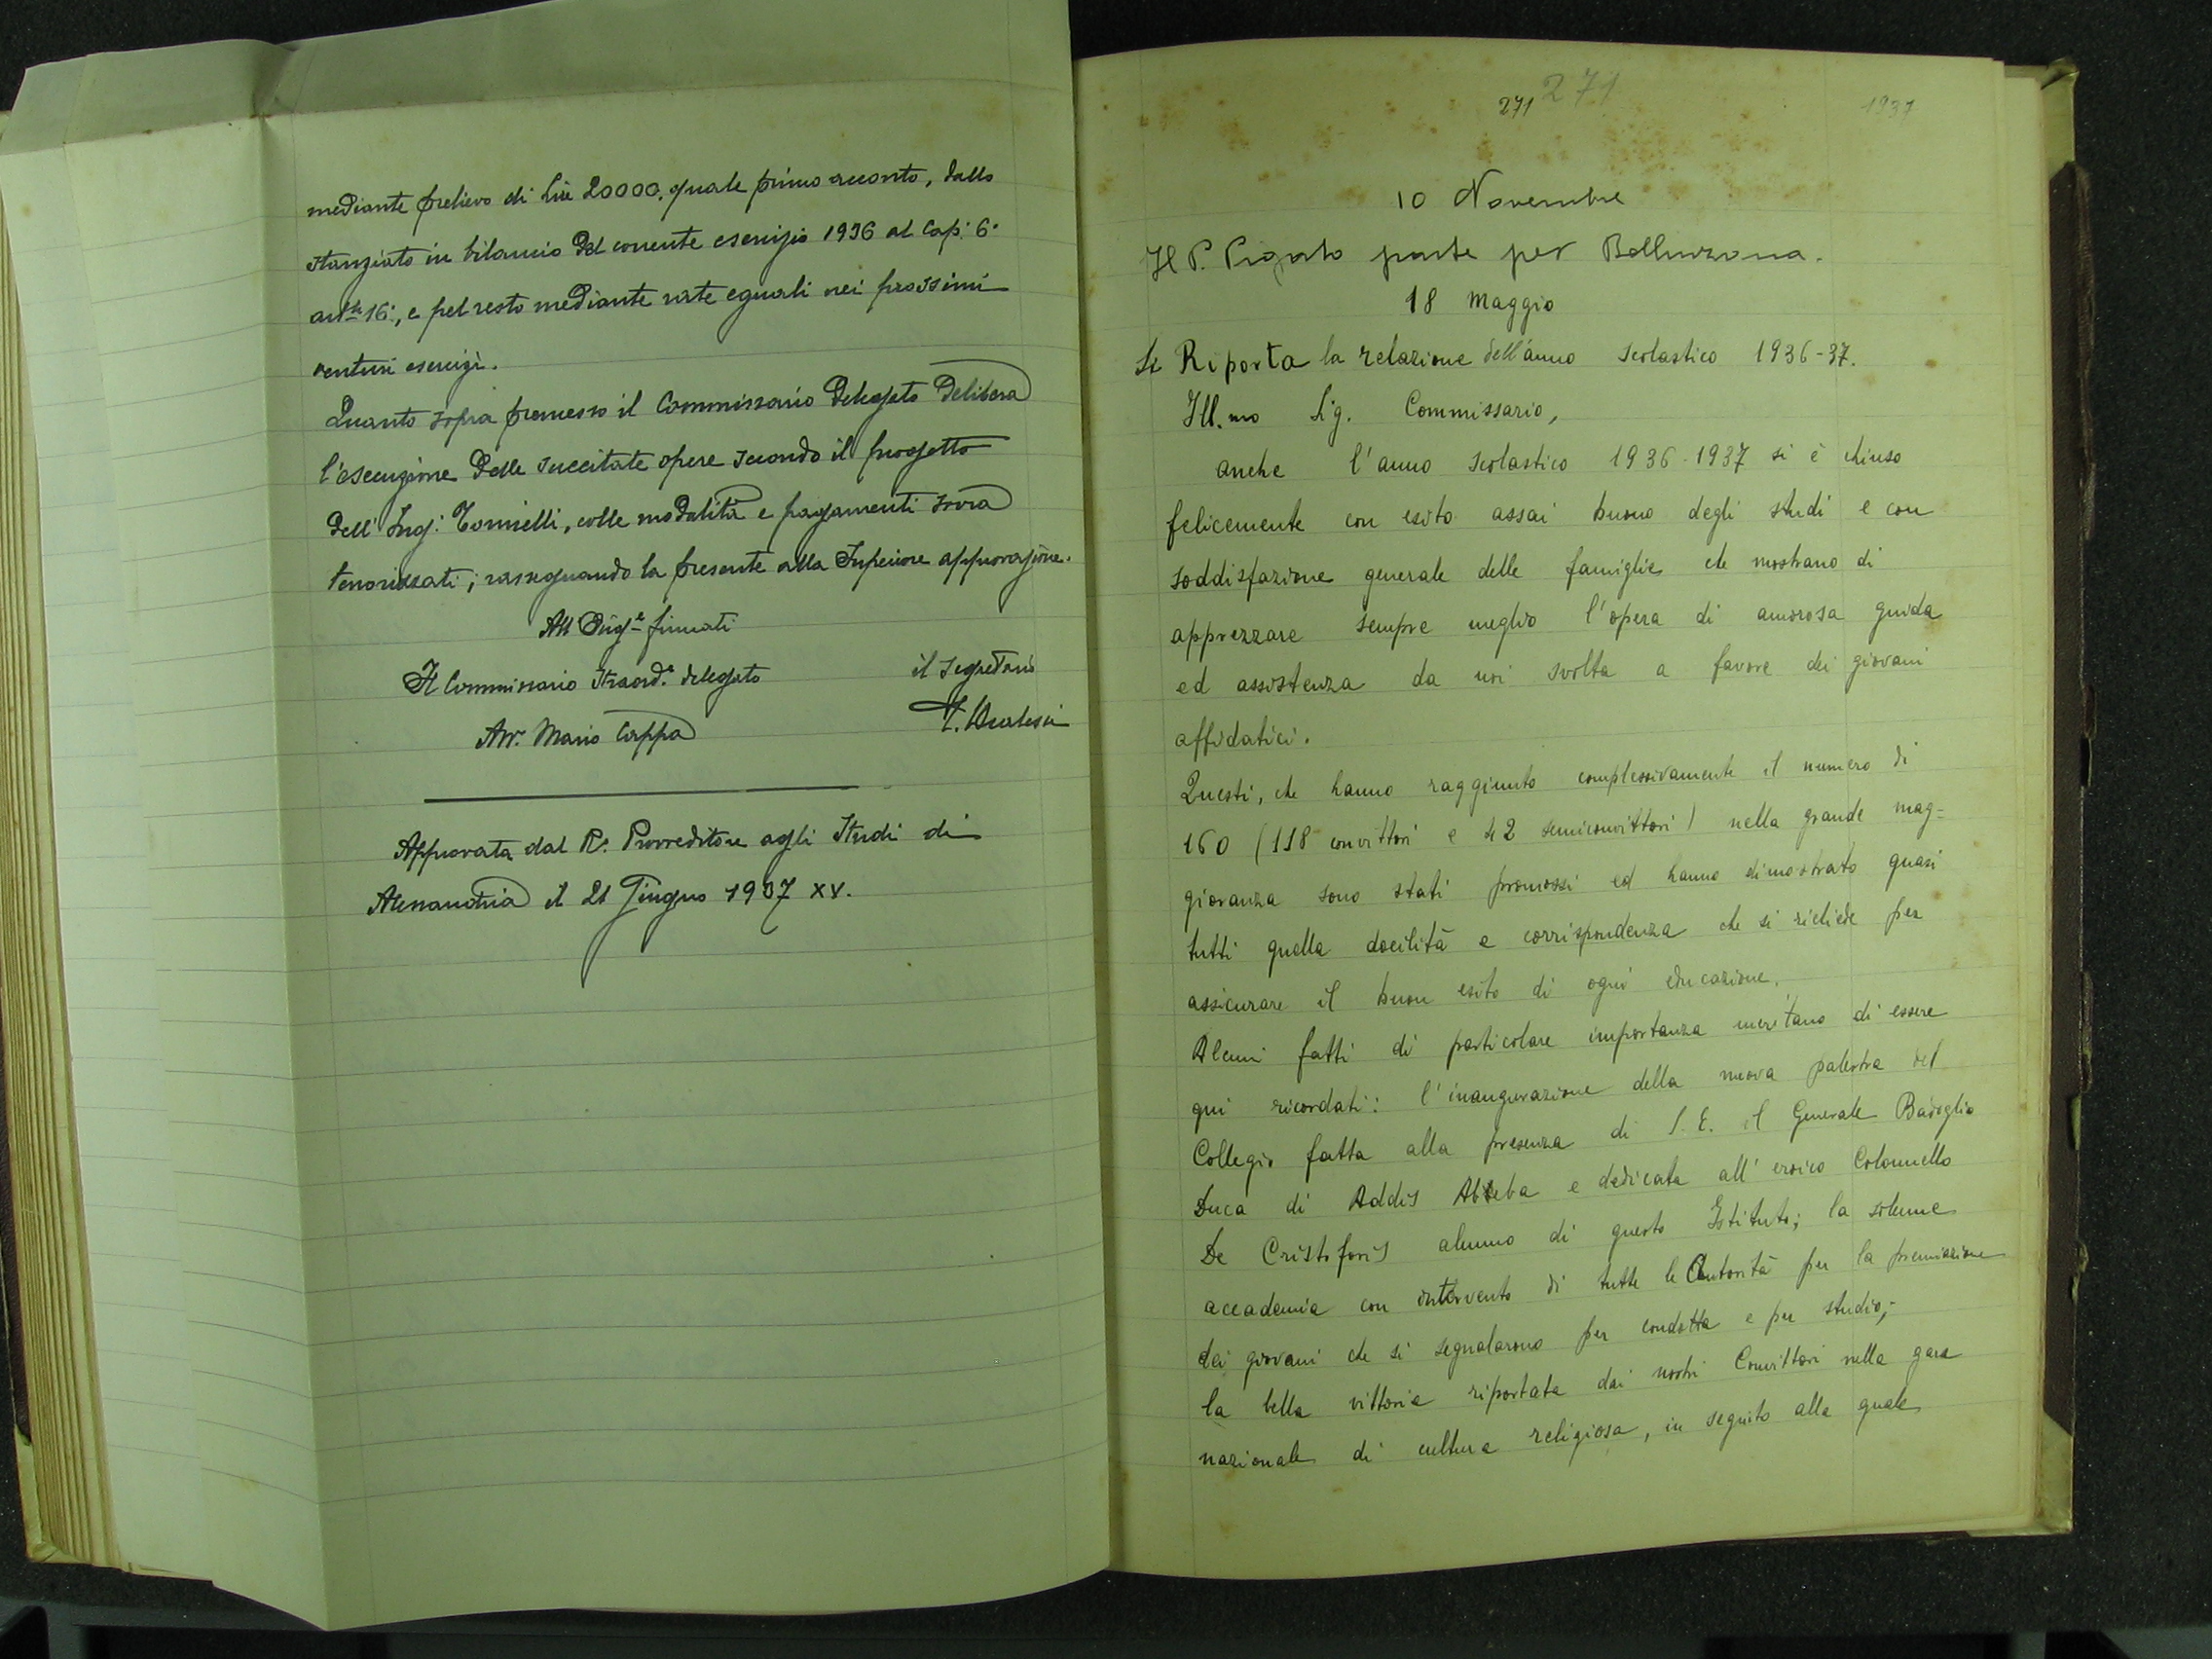 mediante prelievo di Lire 20000, quale primo acconto, dallo
stanziato in bilancio del corrente esercizio 1936 al Cap: 6°
16°, e pel resto mediante rate eguali nei prossimi
venturi esercizi.
Quanto sopra premesso il Commissario Delegato Delibera
l'esecuzione delle succitate opere secondo il progetto
dell'Ing: Tornielli, colle modalità e pagamenti sovra
tenorizzati; rassegnando la presente alla Superiore approvazione.
All' firmati
Il Commissario Straord.° delegato
il segretario
Avv. Mario Coppa
Approvata dal R° Provveditore agli Studi di
Alessandria il 21 Giugno 1937 XV.
271 271
1937
10 Novembre
Il P. Pigato parte per Bellinzona.
18 Maggio
Si Riporta la relazione dell'anno scolastico 1936-37.
Ill.mo Sig. Commissario,
anche l'anno scolastico 1936-1937 si è chiuso
felicemente con esito assai buono degli studi e con
soddisfazione generale delle famiglie che mostrano di
apprezzare sempre meglio l'opera di amorosa guida
ed assistenza da noi svolta a favore dei giovani
affidatici.
Questi, che hanno raggiunto complessivamente il numero di
160 (118 convittori e 42 semiconvittori) nella grande mag-
gioranza sono stati promossi ed hanno dimostrato quasi
tutti quella docilità e corrispondenza che si richiede per
assicurare il buon esito di ogni educazione.
Alcuni fatti di particolare importanza meritano di essere
qui ricordati: l'inaugurazione della nuova palestra del
Collegio fatta alla presenza di S. E. il Generale Badoglio
Duca di Addis Abeba e dedicata all'eroico Colonnello
De Cristoforis alunno di questo Istituto; la solenne
accademia con intervento di tutte le Autorità per la premiazione
dei giovani che si segnalarono per condotta e per studio;-
la bella vittoria riportata dai nostri Convittori nella gara
nazionale di cultura religiosa, in seguito alla quale